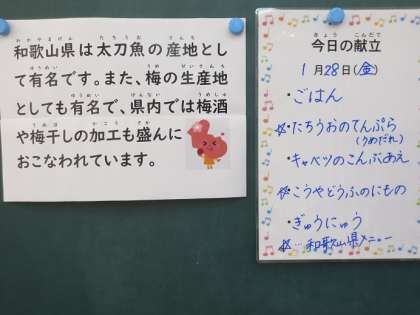 和歌山県は太刀魚の産地とし
て有名です。また、梅の生産地
としても有名で、県内では梅酒
や梅干しの加工も盛んに
おこなわれています。
今日の献立
1月28日(金)
・ごはん
☆たちうおのてんぷら
(うめだれ)
・キャベツのこんぶあえ
☆こうやどうふのにもの
・ぎゅうにゅう
☆…和歌山県メニュー